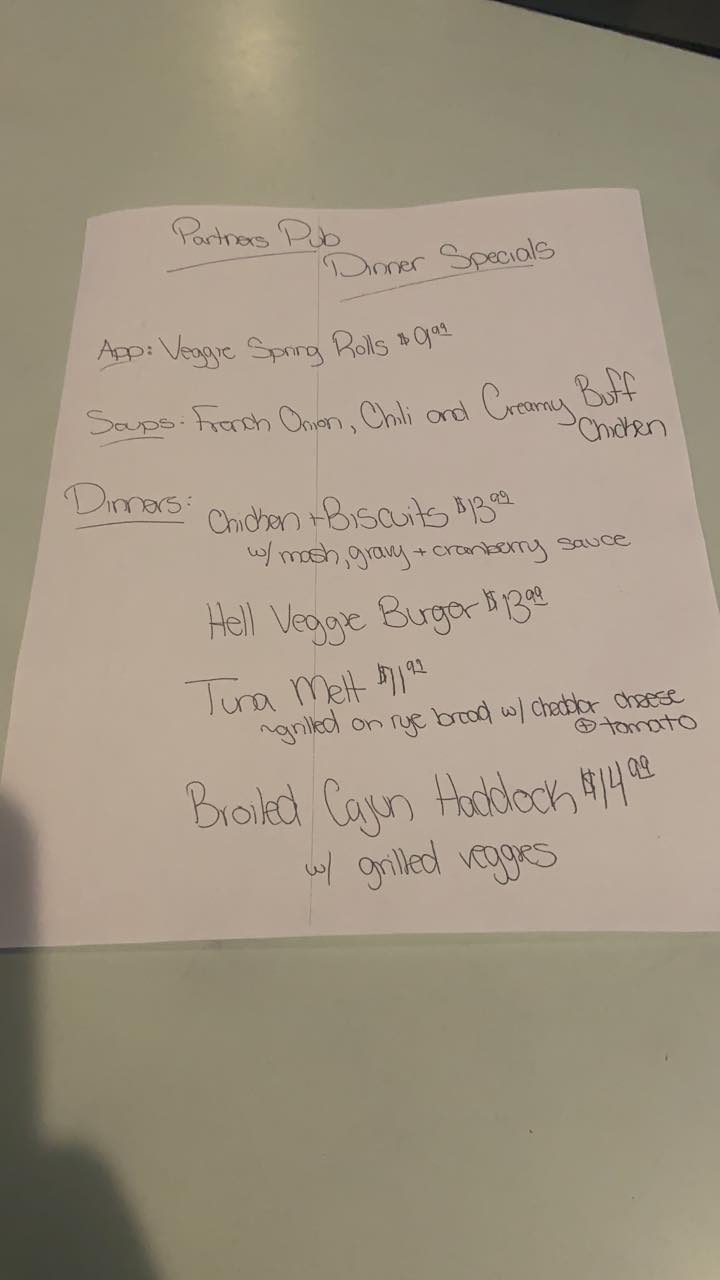 Partners Pub
Dinner Specials
App: Veggie Spring Rolls $9.99
Soups: French Onion, Chili and Creamy Buff
Chicken
Dinners: Chicken + Biscuits $13.99
w/ mash, gravy + cranberry sauce
Hell Veggie Burger $13.99
Tuna Melt $11.99
~grilled on rye bread w/ cheddar cheese
+ tomato
Broiled Cajun Haddock $14.99
w/ grilled veggies